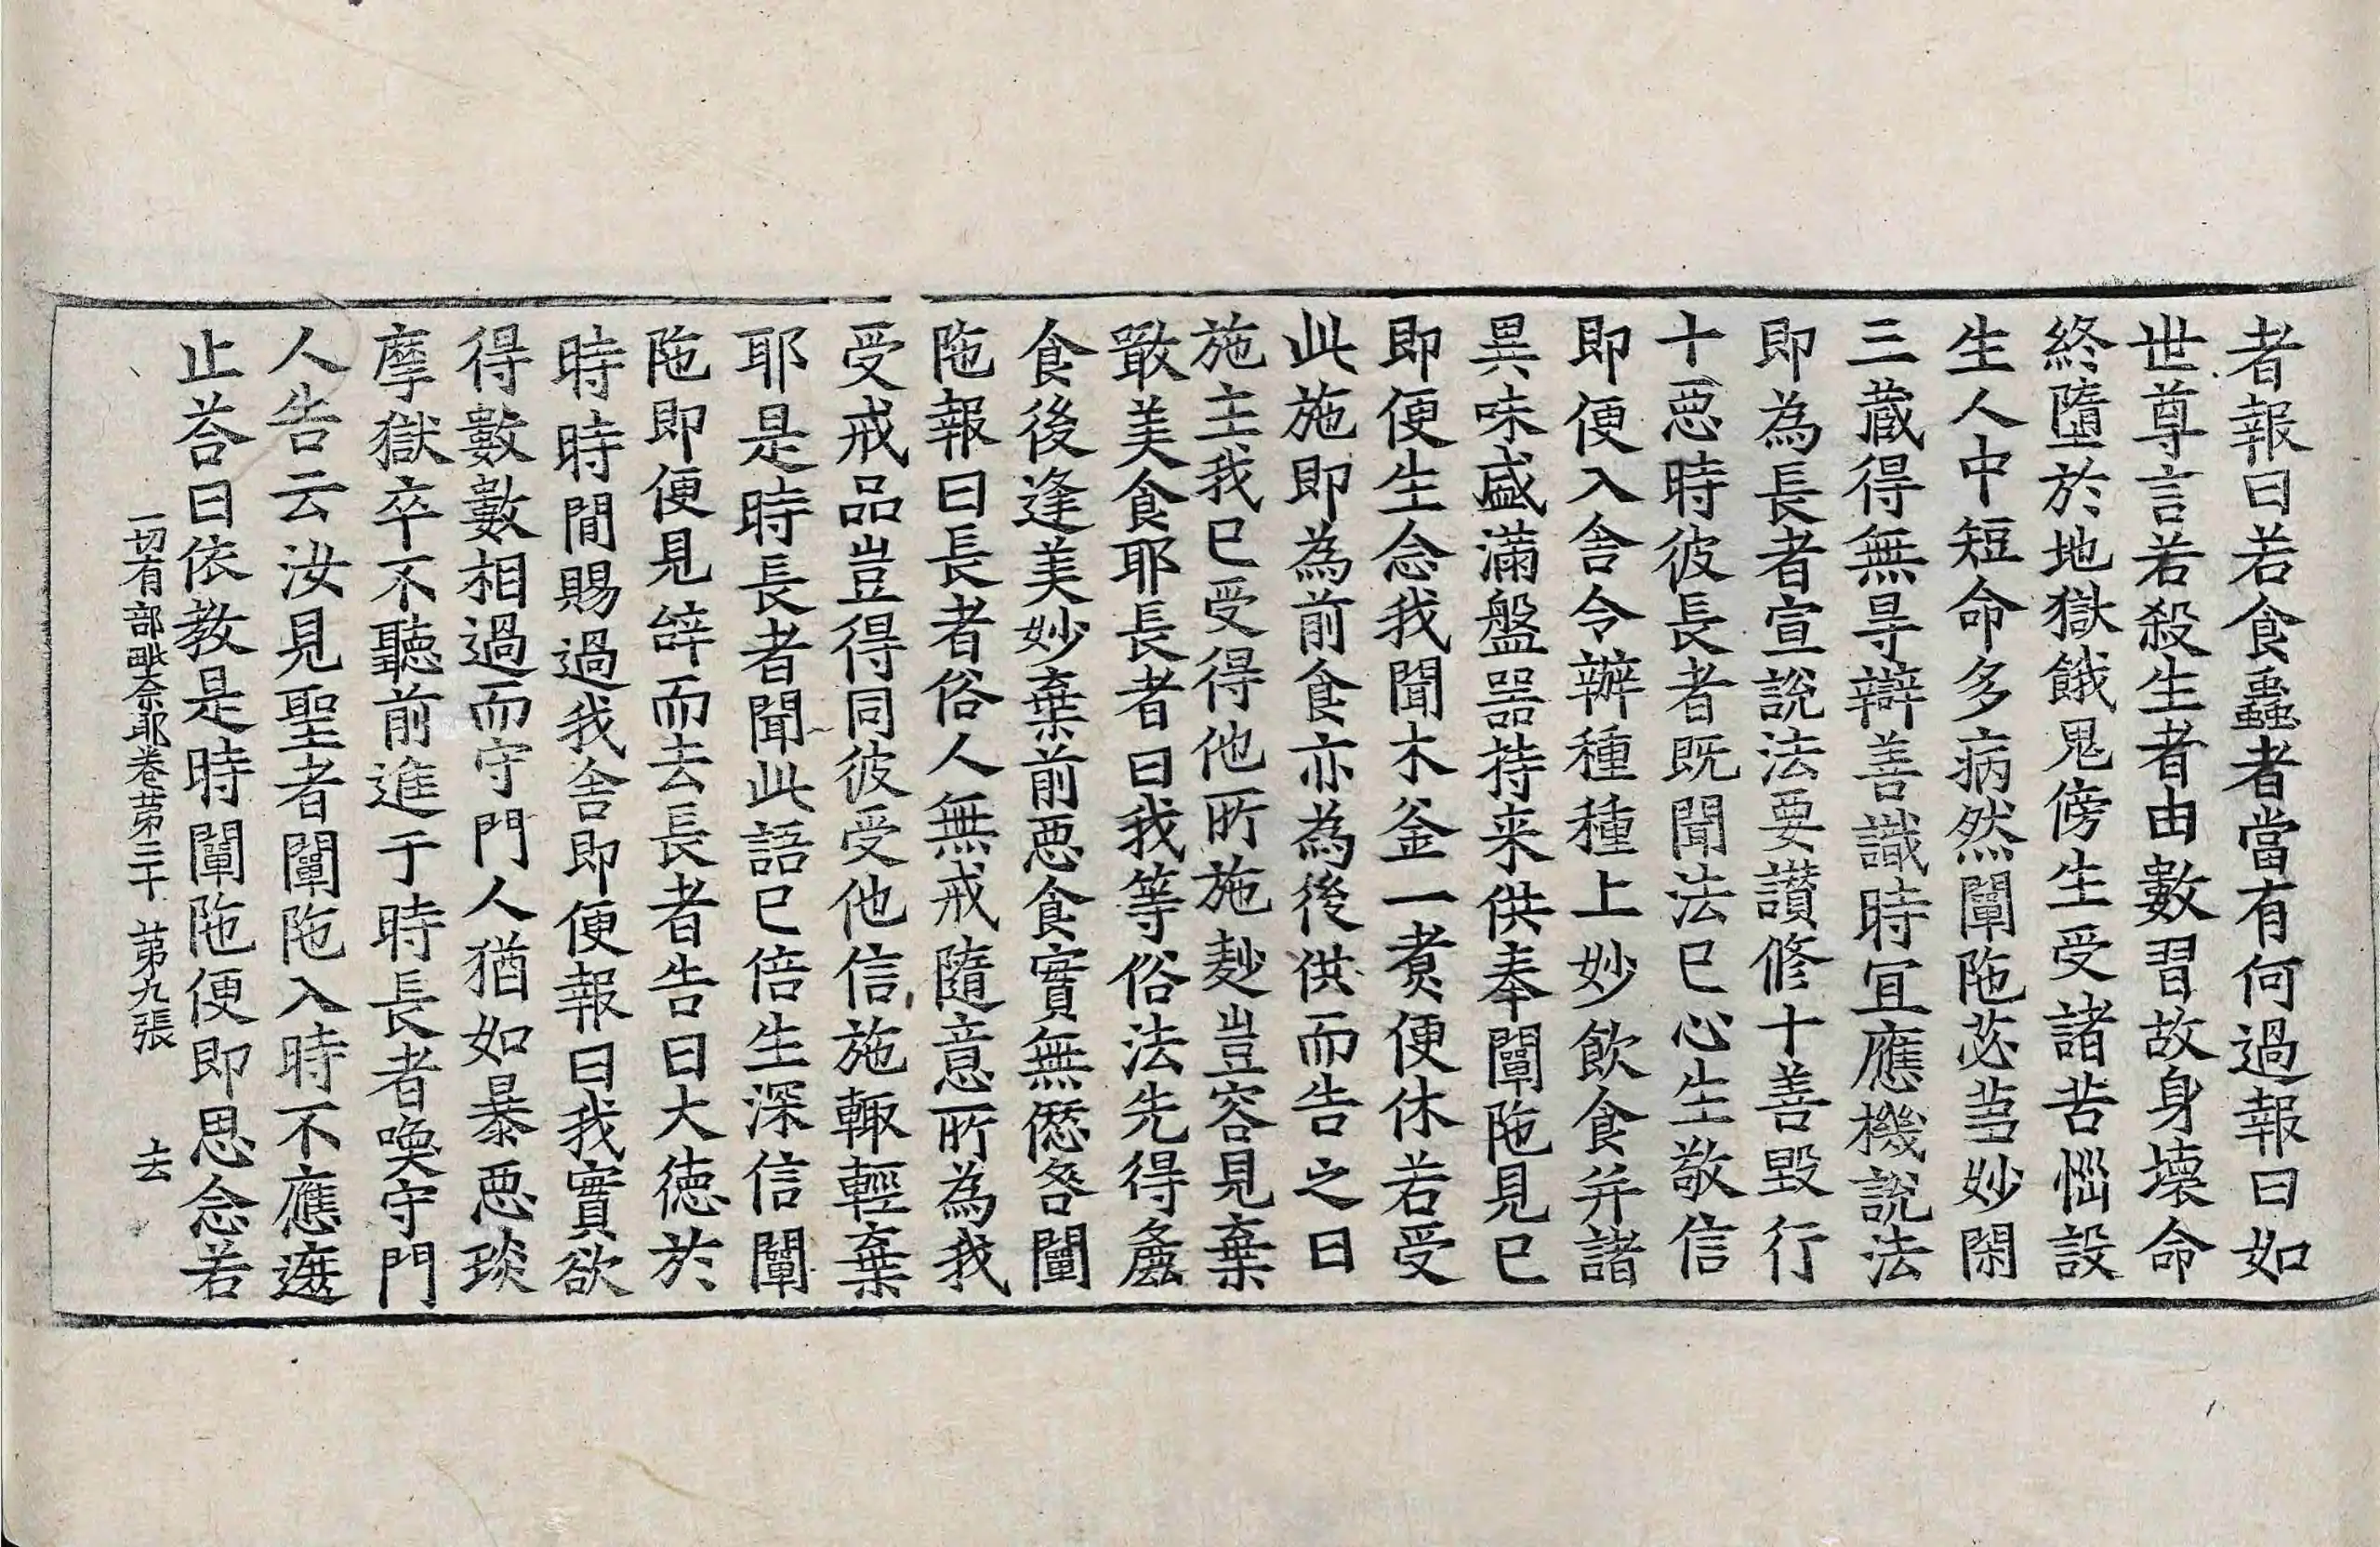 者報曰若食蟲者當有何過報曰如
世尊言若殺生者由數習故身壞命
終墮於地獄餓鬼傍生受諸苦惱設
生人中短命多病然闡陁苾芻妙閑
三藏得無㝵辯善識時宜應機說法
即為長者宣說法要讚修十善毀行
十惡時彼長者既聞法已心生敬信
即便入舍令辦種種上妙飲食并諸
異味盛滿盤器持来供奉闡陁見已
即便生念我聞木釜一煮便休若受
此施即為前食亦為後供而告之曰
施主我已受得他所施麨豈容見棄
噉美食耶長者曰我等俗法先得麁
食後逢美妙棄前惡食實無愆咎闡
陁報曰長者俗人無戒隨意所為我
受戒品豈得同彼受他信施輙輕棄
耶是時長者聞此語已倍生深信闡
陁即便見辝而去長者告曰大德於
時時間賜過我舍即便報曰我實欲
得數數相過而守門人猶如暴惡琰
摩獄卒不聽前進于時長者喚守門
人告云汝見聖者闡陁入時不應遮
止荅曰依教是時闡陁便即思念若
一切有部毗奈耶卷苐三十 苐九張 去